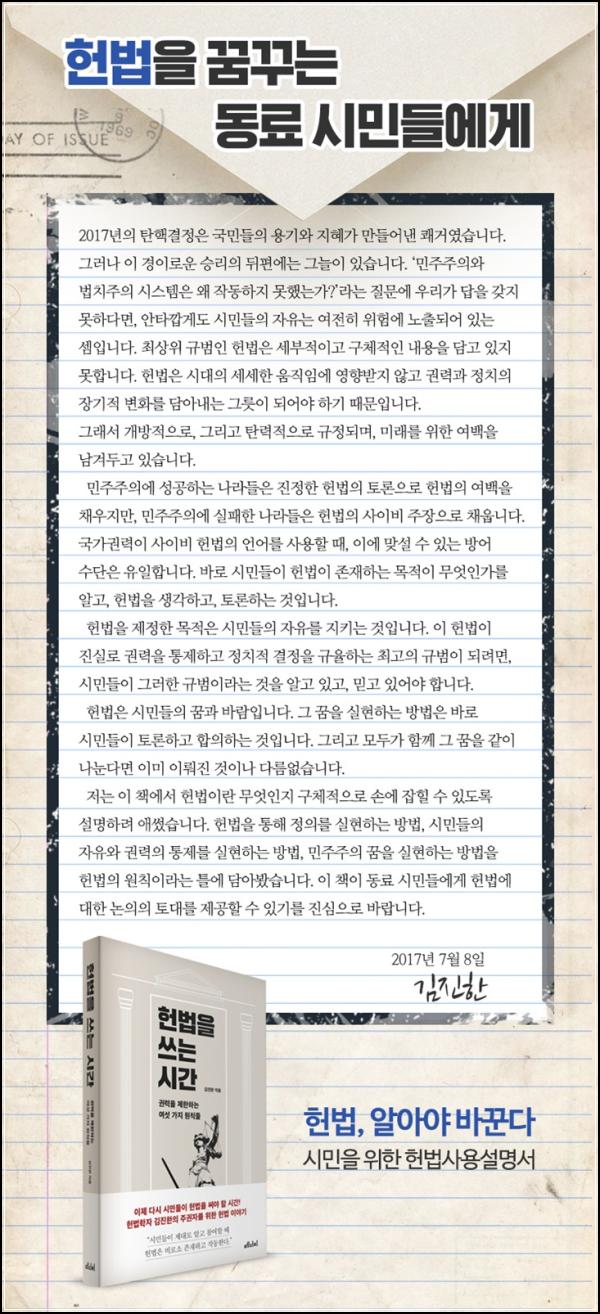 헌법을 꿈꾸는
동료 시민들에게
AY OF ISSUE
1969
2017년의 탄핵결정은 국민들의 용기와 지혜가 만들어낸 쾌거였습니다.
그러나 이 경이로운 승리의 뒤편에는 그늘이 있습니다. ‘민주주의와
법치주의 시스템은 왜 작동하지 못했는가?’라는 질문에 우리가 답을 갖지
못하다면, 안타깝게도 시민들의 자유는 여전히 위험에 노출되어 있는
셈입니다. 최상위 규범인 헌법은 세부적이고 구체적인 내용을 담고 있지
못합니다. 헌법은 시대의 세세한 움직임에 영향받지 않고 권력과 정치의
장기적 변화를 담아내는 그릇이 되어야 하기 때문입니다.
그래서 개방적으로, 그리고 탄력적으로 규정되며, 미래를 위한 여백을
남겨두고 있습니다.
민주주의에 성공하는 나라들은 진정한 헌법의 토론으로 헌법의 여백을
채우지만, 민주주의에 실패한 나라들은 헌법의 사이비 주장으로 채웁니다.
국가권력이 사이비 헌법의 언어를 사용할 때, 이에 맞설 수 있는 방어
수단은 유일합니다. 바로 시민들이 헌법이 존재하는 목적이 무엇인가를
알고, 헌법을 생각하고, 토론하는 것입니다.
헌법을 제정한 목적은 시민들의 자유를 지키는 것입니다. 이 헌법이
진실로 권력을 통제하고 정치적 결정을 규율하는 최고의 규범이 되려면,
시민들이 그러한 규범이라는 것을 알고 있고, 믿고 있어야 합니다.
헌법은 시민들의 꿈과 바람입니다. 그 꿈을 실현하는 방법은 바로
시민들이 토론하고 합의하는 것입니다. 그리고 모두가 함께 그 꿈을 같이
나눈다면 이미 이뤄진 것이나 다름없습니다.
저는 이 책에서 헌법이란 무엇인지 구체적으로 손에 잡힐 수 있도록
설명하려 애썼습니다. 헌법을 통해 정의를 실현하는 방법, 시민들의
자유와 권력의 통제를 실현하는 방법, 민주주의 꿈을 실현하는 방법을
헌법의 원칙이라는 틀에 담아봤습니다. 이 책이 동료 시민들에게 헌법에
대한 논의의 토대를 제공할 수 있기를 진심으로 바랍니다.
2017년 7월 8일
김진한
헌법을 쓰는 시간
권력을 제한하는
여섯 가지 원칙들
헌법을
쓰는
시간
김진한 지음
권력을 제한하는
여섯 가지 원칙들
이제 다시 시민들이 헌법을 써야 할 시간!
헌법학자 김진한의 주권자를 위한 헌법 이야기
“시민들이 제대로 알고 참여할 때
헌법은 비로소 존재하고 작동한다.”
메디치
헌법, 알아야 바꾼다
시민을 위한 헌법사용설명서